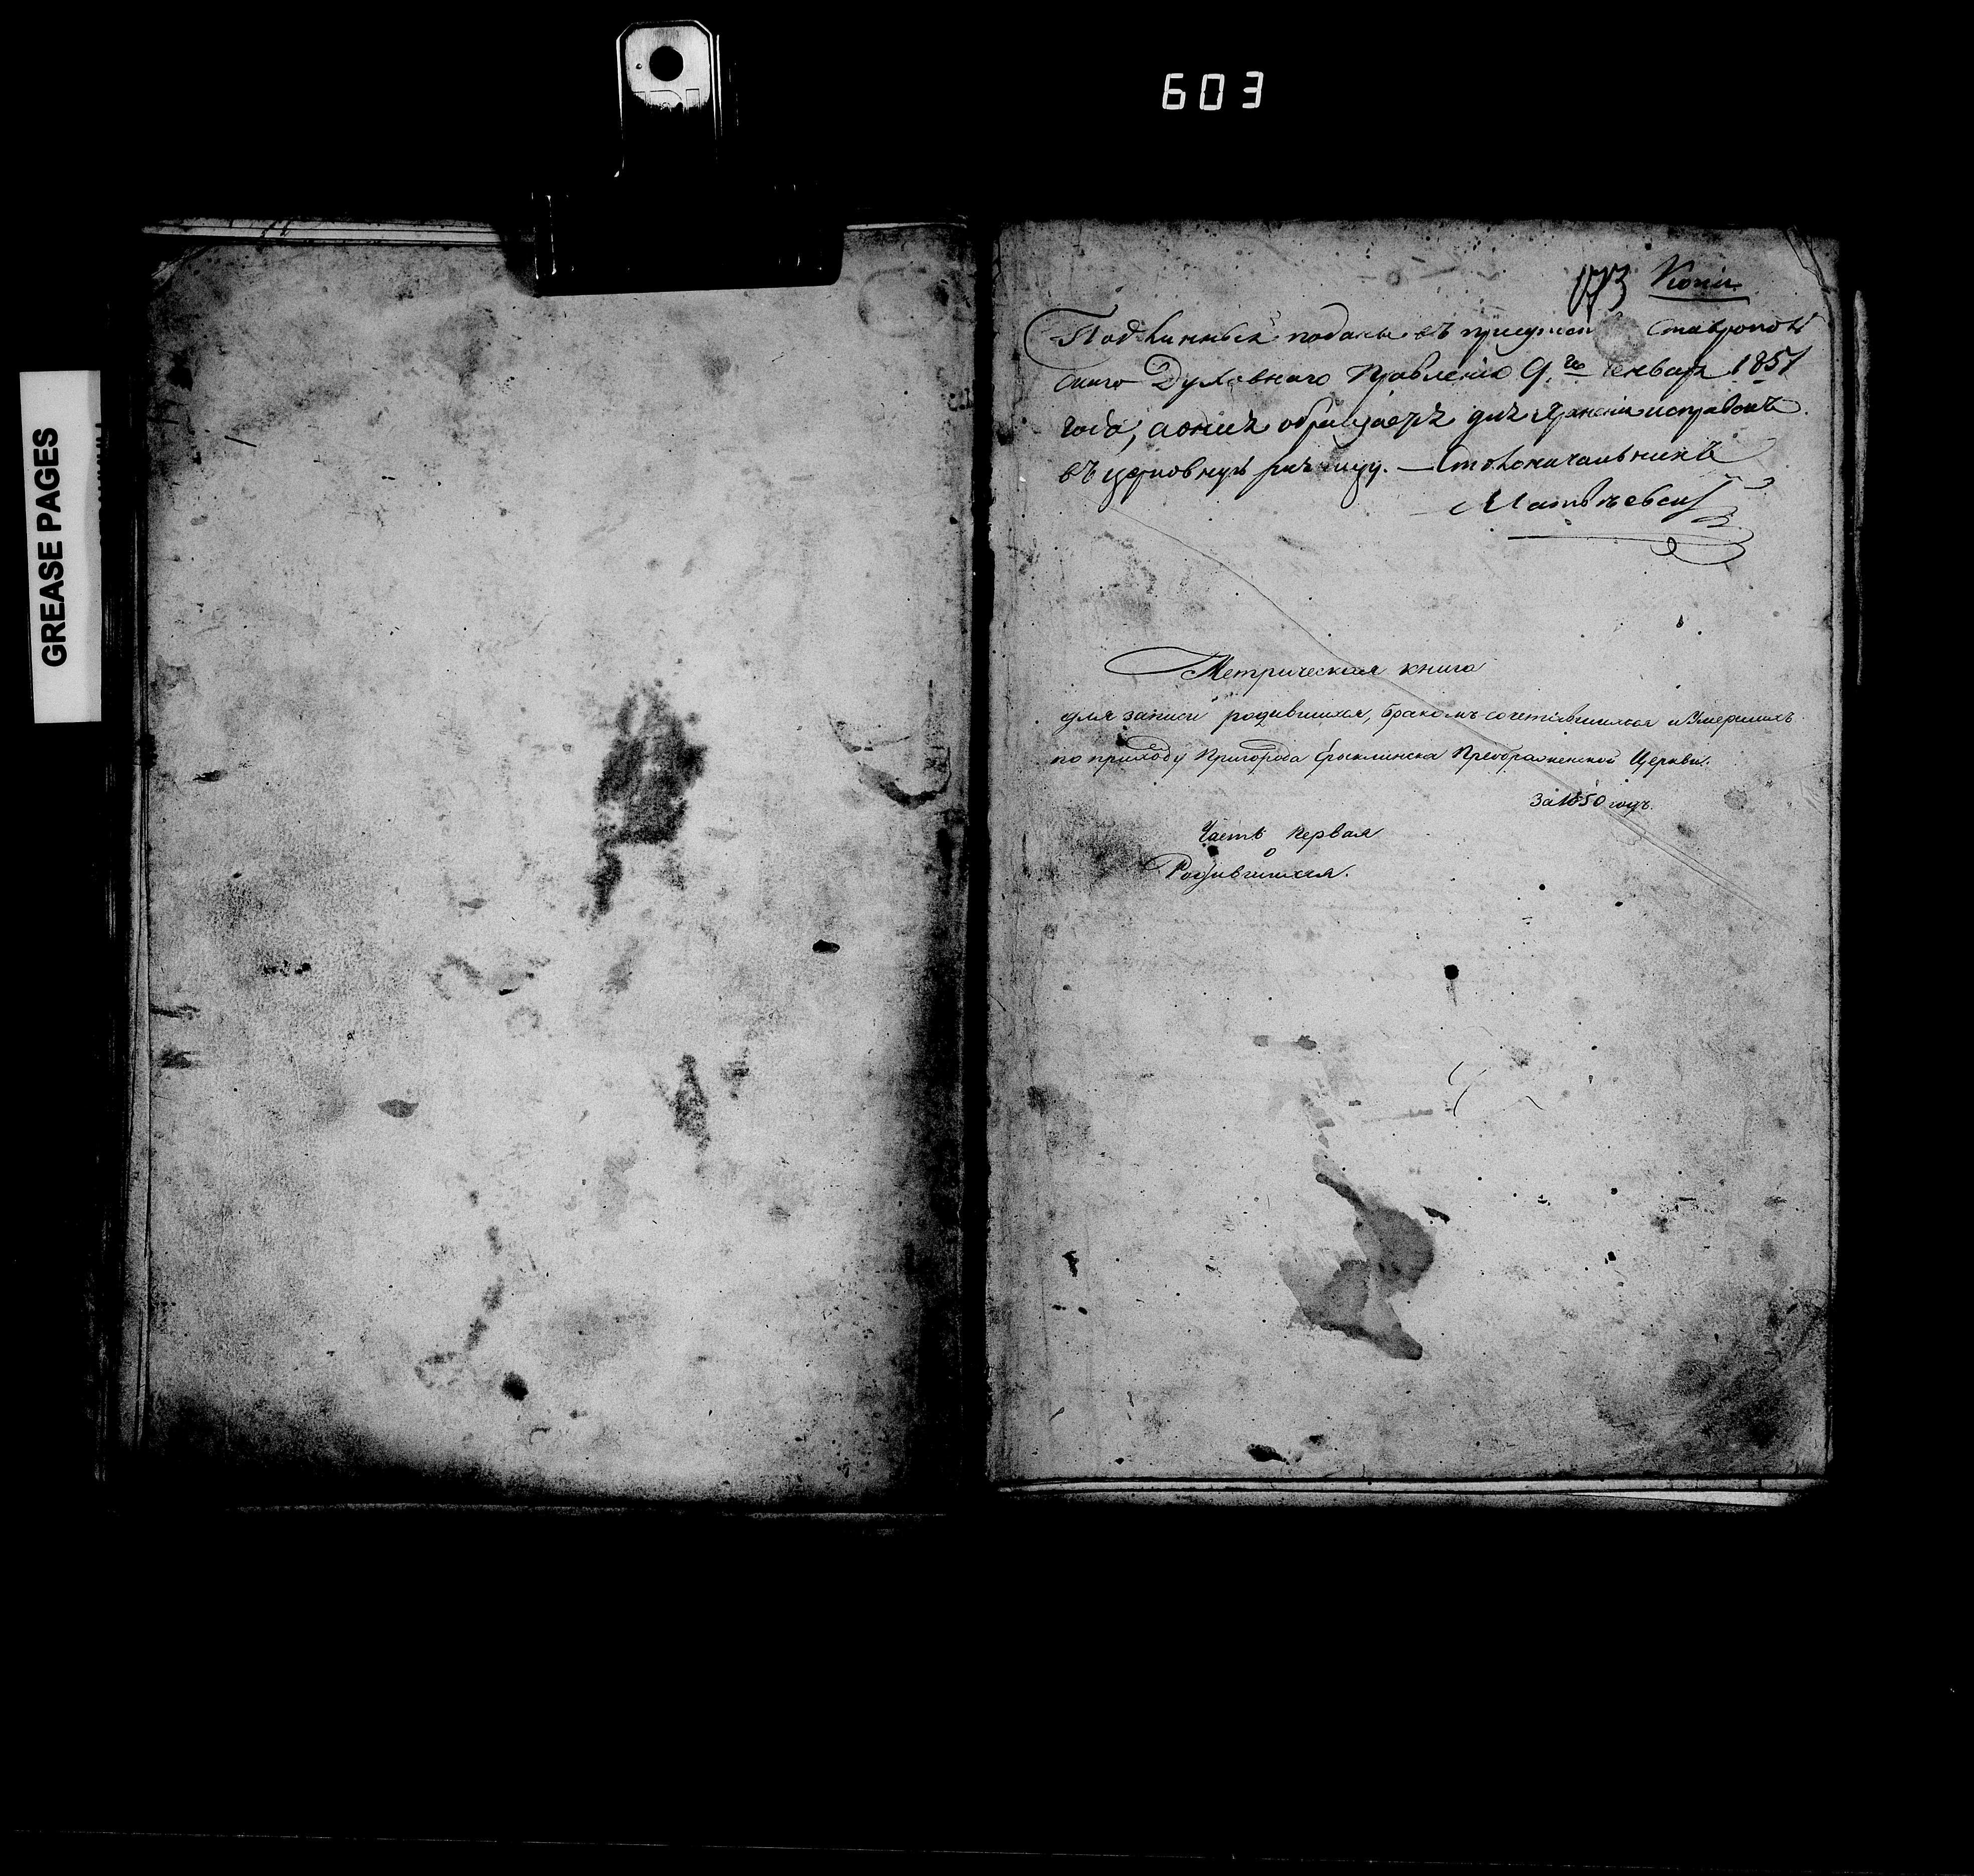 603
GREASE PAGES
Копія
Подлинныя поданы въ Ставрополь
скаго Духовнаго Правленія 9.го Генваря 1851
года, а сей для храненія
въ церковную ризницу. — Столоначальникъ
Метрическая книга
для записи родившихся, бракомъ сочетавшихся и Умершихъ
по приходу Пригорода Ерыклинска Преображенской Церкви.
За 1850 годъ.
Часть первая
о
Родившихся.